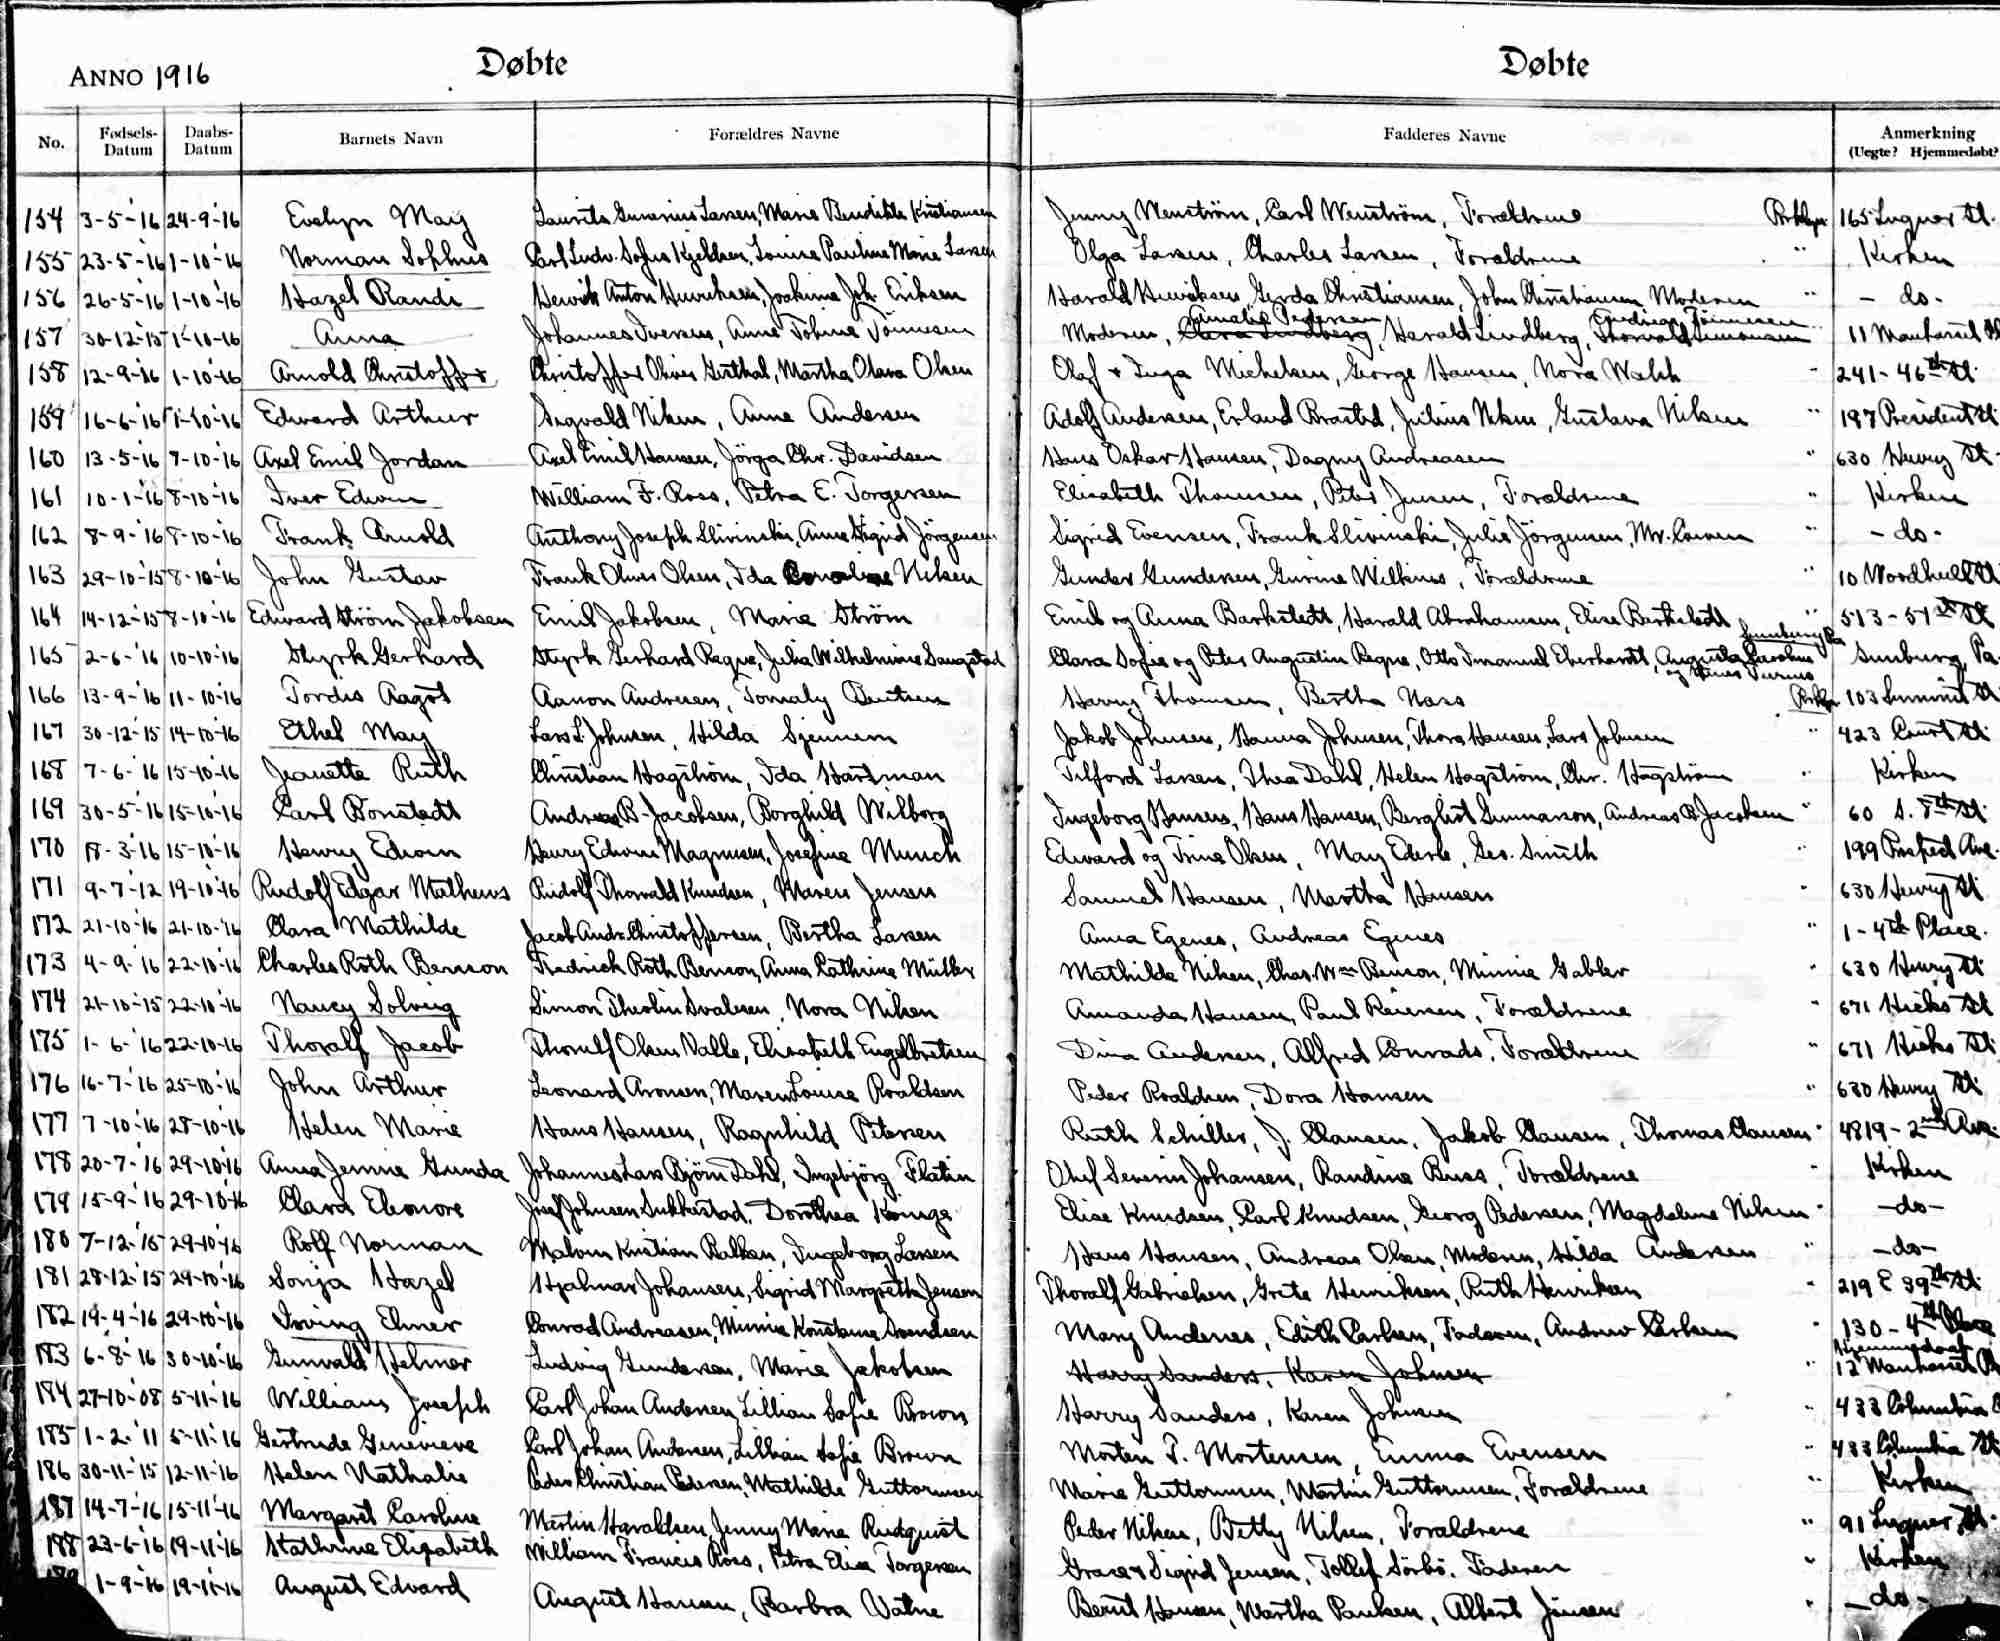 ANNO 1916 Døbte Døbte
No. Fødsels-Datum Daabs-Datum Barnets Navn Forældres Navne Fadderes Navne Anmerkning (Uegte? Hjemmedøbt?
154 3-5-'16 24-9-'16 Evelyn May Laurits Gunerius Larsen, Marie Bendikte Kristiansen Jenny Wenström, Carl Wenström, Forældrene Brklyn 165 Luquer St.
155 23-5-'16 1-10-'16 Norman Sophus Carl Ludv. Sofus Kjeldsen, Louise Pauline Marie Larsen Olga Larsen, Charles Larsen, Forældrene " Kirken
156 26-5-'16 1-10-'16 Hazel Randi Henrik Anton Henriksen, Joakime Joh. Eriksen Harald Henriksen, Gerda Christiansen, John Christiansen, Moderen " - do -
157 30-12-'15 1-10-'16 Anna Johannes Iversen, Anne Tobine Tönnesen Moderen, Amalie Pedersen, Harald Lindberg, Tönnesen 11 Manhasset
158 12-9-'16 1-10-'16 Arnold Christoffer Christoffer Oliver Gerthal, Martha Olava Olsen Olaf & Inga Michelsen, George Hansen, Nora Walsh " 241-46th St.
159 16-6-'16 1-10-'16 Edward Arthur Sigvald Nilsen, Anne Andersen Adolf Andersen, Erland Brastad, Julius Nilsen, Gustava Nilsen " 187 President St
160 13-5-'16 7-10-'16 Axel Emil Jordan Axel Emil Hansen, Jörga Chr. Davidsen Hans Oskar Hansen, Dagny Andreasen " 630 Henry St.
161 10-1-'16 8-10-'16 Iver Edvin William F. Ross, Petra E. Torgersen Elisabeth Thomsen, Peter Jensen, Forældrene " Kirken
162 8-9-'16 8-10-'16 Frank Arnold Anthony Joseph Slivinski, Anne Sigrid Jörgensen Sigrid Evensen, Frank Slivinski, Julie Jörgensen, Mr. " - do -
163 29-10-'15 8-10-'16 John Gustav Frank Oliver Olsen, Ida Nilsen Gunder Gundersen, Gurine Wilkins, Forældrene " 10 Woodhull St
164 14-12-'15 8-10-'16 Edward Ström Jakobsen Emil Jakobsen, Marie Ström Emil og Anna Barkstedt, Harald Abrahamsen, Elise Barkstedt " 513-51st St
165 2-6-'16 10-10-'16 Styrk Gerhard Styrk Gerhard Reque, Julia Wilhelmine Saugstad Clara Sofie og Peter Augustin Reque, Otto Imanuel Eberhardt, Augusta Sunbury Pa Sunbury, Pa.
166 13-9-'16 11-10-'16 Tordis Aagot Aanon Andresen, Tomaly Bentsen Harry Thomsen, Bertha Nass Brklyn 103 Summit St
167 30-12-'15 14-10-'16 Ethel May Lars L. Johnsen, Hilda Sjennem Jakob Johnsen, Hanna Johnsen, Thora Hansen, Lars Johnsen " 423 Court St.
168 7-6-'16 15-10-'16 Jeanette Ruth Christian Hagström, Ida Hartman Tilford Larsen, Thea Dahl, Helen Hagström, Chr. Hagström " Kirken
169 30-5-'16 15-10-'16 Carl Bonstedt Andreas B. Jacobsen, Borghild Wilborg Ingeborg Hansen, Hans Hansen, Bergliot Gunnarson, Andreas B. Jacobsen " 60 S. 8th St.
170 18-3-'16 15-10-'16 Henry Edvin Henry Edvin Magnusen, Josefine Munch Edward og Trine Olsen, May Ederle, Geo. Smith " 199 Prospect Ave.
171 9-7-'12 19-10-'16 Rudolf Edgar Mathews Rudolf Thorvald Knudsen, Maren Jensen Samuel Hansen, Martha Hansen " 630 Henry St
172 21-10-'16 21-10-'16 Clara Mathilde Jacob Andr. Christoffersen, Bertha Larsen Anna Egenes, Andreas Egenes " 1-4th Place.
173 4-9-'16 22-10-'16 Charles Roth Benson Fredrick Roth Benson, Anna Cathrine Müller Mathilde Nilsen, Chas. Wm Benson, Minnie Gabler " 630 Henry St
174 21-10-'15 22-10-'16 Nancy Solveig Simon Theolin Svalesen, Nora Nilsen Amanda Hansen, Paul Reiersen, Forældrene " 671 Hicks St
175 1-6-'16 22-10-'16 Thoralf Jacob Thorulf Olsen Valle, Elisabeth Engelbretsen Dina Andersen, Alfred Conrads, Forældrene " 671 Hicks St.
176 16-7-'16 25-10-'16 John Arthur Leonard Aronsen, Maren Louise Roaldsen Peder Roaldsen, Dora Hansen " 630 Henry St.
177 7-10-'16 28-10-'16 Helen Marie Hans Hansen, Ragnhild Petersen Ruth Schiller, J. Clausen, Jakob Clausen, Thomas Clausen " 4819-2nd Ave.
178 20-7-'16 29-10-'16 Anna Jennie Gunda Johannes Lars Björn Dahl, Ingebjörg Flatin Olaf Severin Johansen, Randine Buss, Forældrene " Kirken
179 15-9-'16 29-10-'16 Clara Eleonore Josef Johnsen Sukkestad, Dorothea Konge Elise Knudsen, Carl Knudsen, Georg Pedersen, Magdalene Nilsen " - do -
180 7-12-'15 29-10-'16 Rolf Norman Malvin Kristian Balken, Ingeborg Larsen Hans Hansen, Andreas Olsen, Moderen, Hilda Andersen " - do -
181 28-12-'15 29-10-'16 Sonja Hazel Hjalmar Johansen, Sigrid Margrethe Jensen Thoralf Gabrielsen, Grete Henriksen, Ruth Henriksen " 219 E 39th St.
182 19-4-'16 29-10-'16 Irving Elmer Conrad Andreasen, Minnie Konstanse Svendsen Mary Andenes, Edith Carlsen, Faderen, Andrew Carlsen " 130-4th Place
183 6-8-'16 30-10-'16 Gunvald Helmer Ludvig Gundersen, Marie Jakobsen Harry Sanders, Karen Johnsen " Hjemmedøbt 12 Manhasset
184 27-10-'08 5-11-'16 William Joseph Carl Johan Andersen, Lillian Sofie Brown Harry Sanders, Karen Johnsen " 433 Columbia
185 1-2-'11 5-11-'16 Gertrude Genevieve Carl Johan Andersen, Lillian Sofie Brown Morten T. Mortensen, Emma Evensen " 433 Columbia St.
186 30-11-'15 12-11-'16 Helen Nathalie Peder Christian Pedersen, Mathilde Guttormsen Marie Guttormsen, Martin Guttormsen, Forældrene " Kirken
187 14-7-'16 15-11-'16 Margaret Caroline Martin Haraldsen, Jenny Marie Rudquist Peder Nilsen, Betty Nilsen, Forældrene " 91 Luquer St.
188 23-6-'16 19-11-'16 Kathrine Elizabeth William Francis Ross, Petra Elise Torgersen Grace & Sigrid Jensen, Tollef Sörbö, Faderen " Kirken
1-9-'16 19-11-'16 August Edvard August Hansen, Barbra Vatne Bernt Hansen, Martha Paulsen, Albert Jensen " - do -